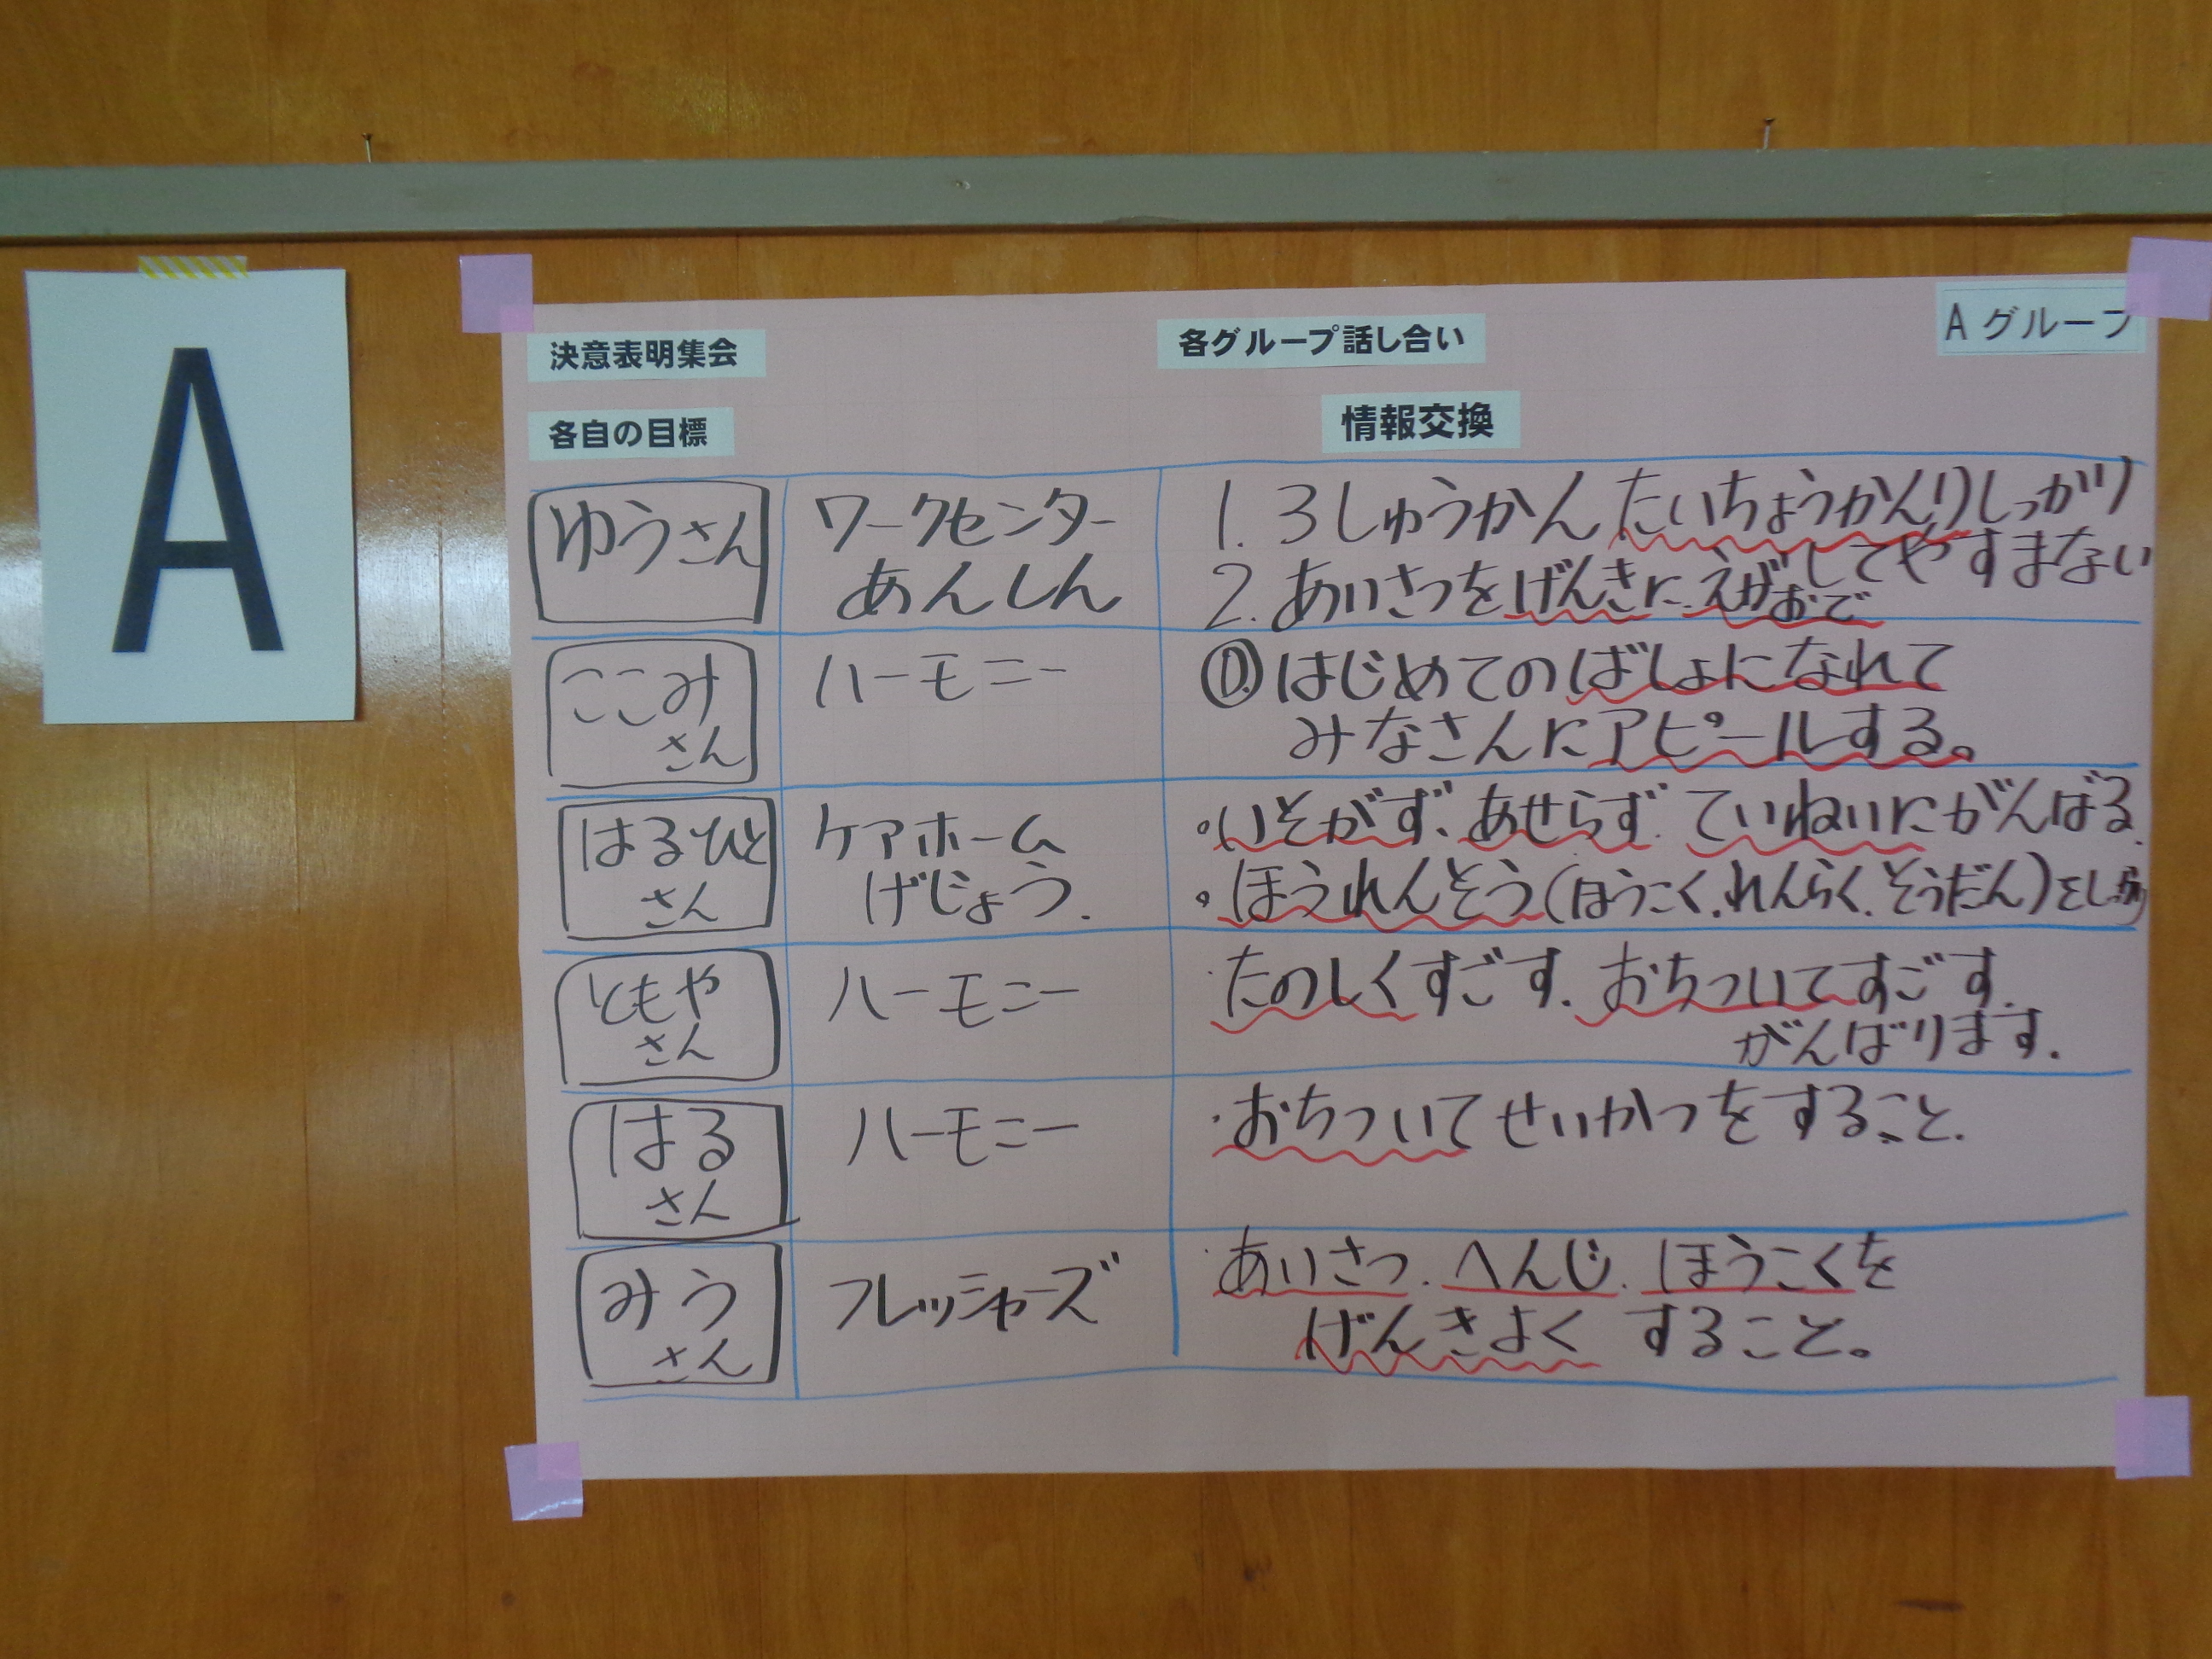 A
決意表明集会
各グループ話し合い
Aグループ
各自の目標
情報交換
ゆうさん
ワークセンター
あんしん
1. 3しゅうかん たいちょうかんりしっかり
してやすまない
2. あいさつをげんきに えがおで
ここみ
さん
ハーモニー
① はじめてのばしょになれて
みなさんにアピールする。
はるひと
さん
ケアホーム
げじょう.
。いそがず、あせらず ていねいにがんばる.
。ほうれんそう(ほうこく.れんらく.そうだん)をしっかり
ともや
さん
ハーモニー
・たのしくすごす. おちついてすごす.
がんばります.
はる
さん
ハーモニー
・おちついて せいかつをすること.
みう
さん
フレッシャーズ
・あいさつ. へんじ. ほうこくを
げんきよく すること。